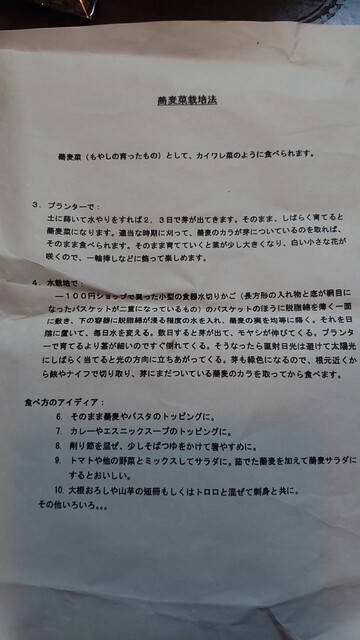 蕎麦菜栽培法
蕎麦菜（もやしの育ったもの）として、カイワレ菜のように食べられます。
３．プランターで：
土に蒔いて水やりをすれば２，３日で芽が出てきます。そのまま、しばらく育てると
蕎麦菜になります。適当な時期に刈って、蕎麦のカラが芽についているのを取れば、
そのまま食べられます。そのまま育てていくと葉が少し大きくなり、白い小さな花が
咲くので、一輪挿しなどに飾って楽しめます。
４．水栽培で：
―１００円ショップで買った小型の食器水切りかご（長方形の入れ物と底が網目に
なったバスケットが二重になっているもの）のバスケットのほうに脱脂綿を薄く一面
に敷き、下の容器に脱脂綿が浸る程度の水を入れ、蕎麦の実を均等に蒔く。それを日
陰に置いて、毎日水を変える。数日すると芽が出て、モヤシが伸びてくる。プランタ
ーで育てるより茎が細いのですぐ倒れてくる。そうなったら直射日光は避けて太陽光
にしばらく当てると光の方向に立ちあがってくる。芽も緑色になるので、根元近くか
ら鋏やナイフで切り取り、芽にまだついている蕎麦のカラを取ってから食べます。
食べ方のアイディア：
6. そのまま蕎麦やパスタのトッピングに。
7. カレーやエスニックスープのトッピングに。
8. 削り節を混ぜ、少しそばつゆをかけて箸やすめに。
9. トマトや他の野菜とミックスしてサラダに。茹でた蕎麦を加えて蕎麦サラダに
するとおいしい。
10. 大根おろしや山芋の短冊もしくはトロロと混ぜて刺身と共に。
その他いろいろ。。。